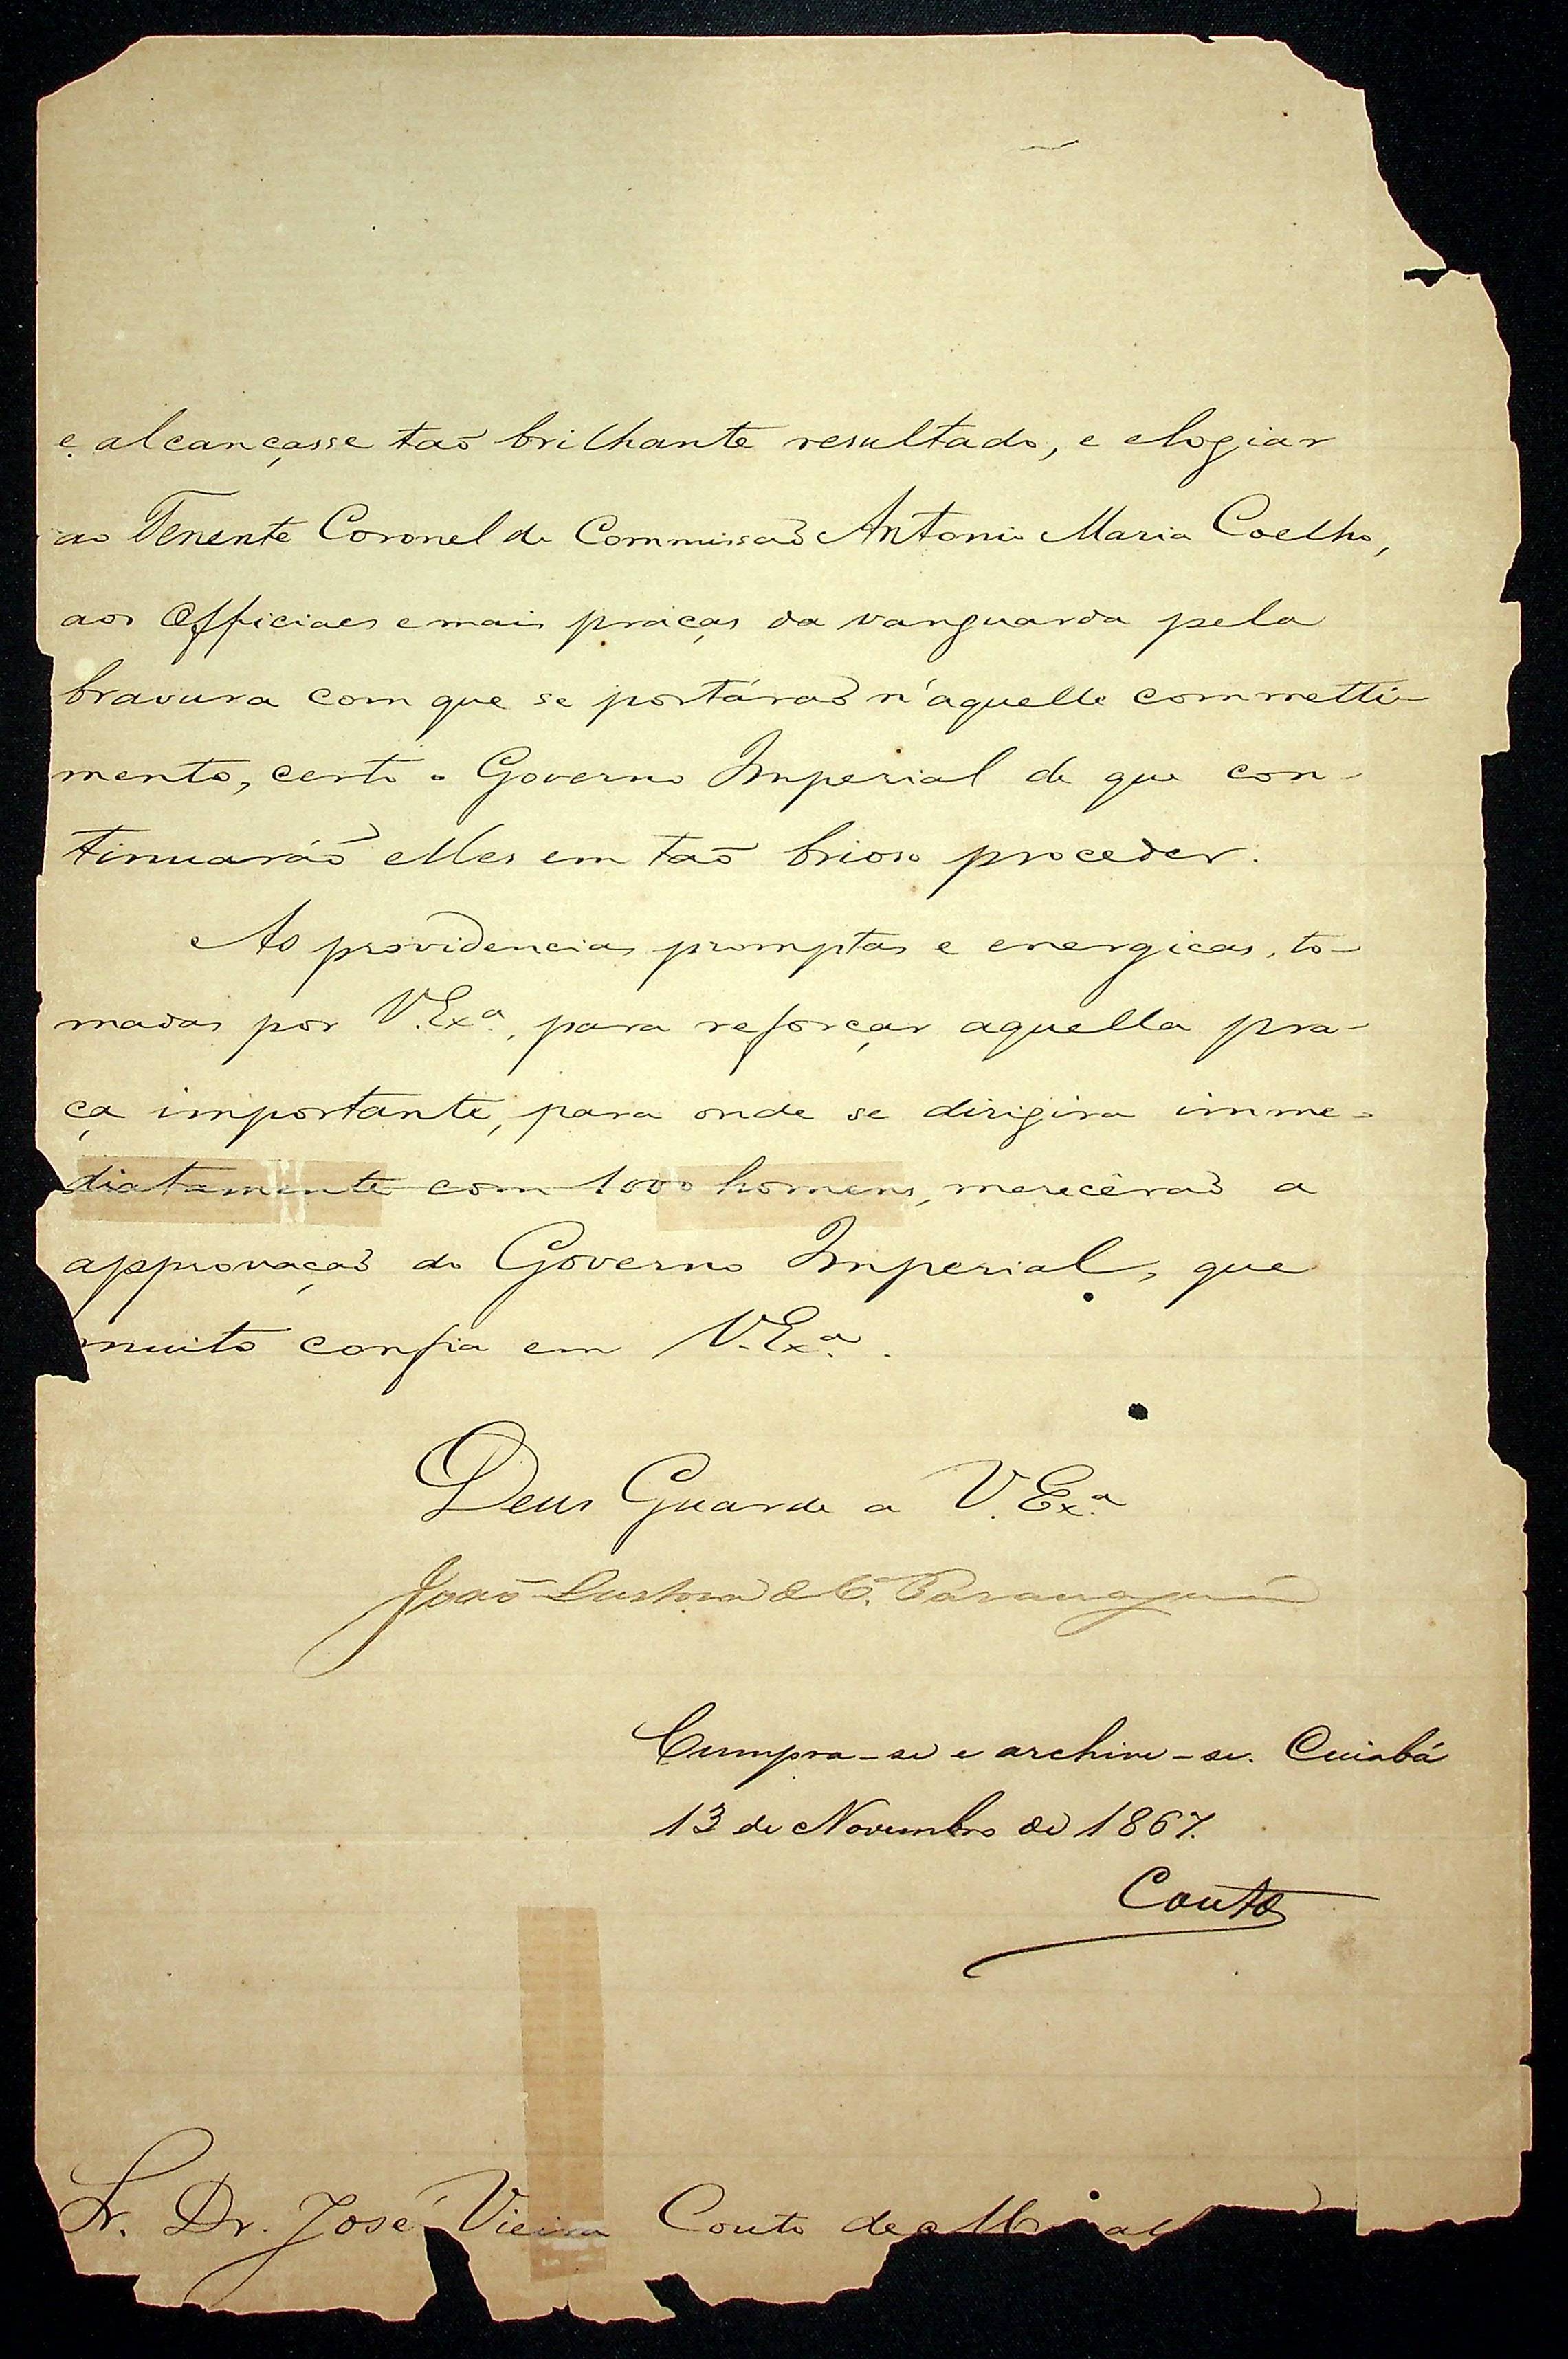 e alcançasse taõ brilhante resultado, e elogiar
ao Tenente Coronel de Commissaõ Antonio Maria Coelho,
aos Officiaes e mais praças da vanguarda pela
bravura com que se portáraõ n'aquelle committi-
mento, certo o Governo Imperial de que con-
tinuaráõ elles em taõ brioso proceder.
As providencias promptas e energicas, to-
madas por V. Exª., para reforçar aquella pra-
ça importante, para onde se dirigira imme-
diatamente com 1000 homens, merecêraõ a
approvaçaõ do Governo Imperial, que
muito confia em V. Exª.
Deus Guarde a V. Exª
João Lustosa da Cª. Paranaguá
Cumpra-se e archive-se. Cuiabá
13 de Novembro de 1867.
Couto
Sr. Dr. José Vieira Couto de